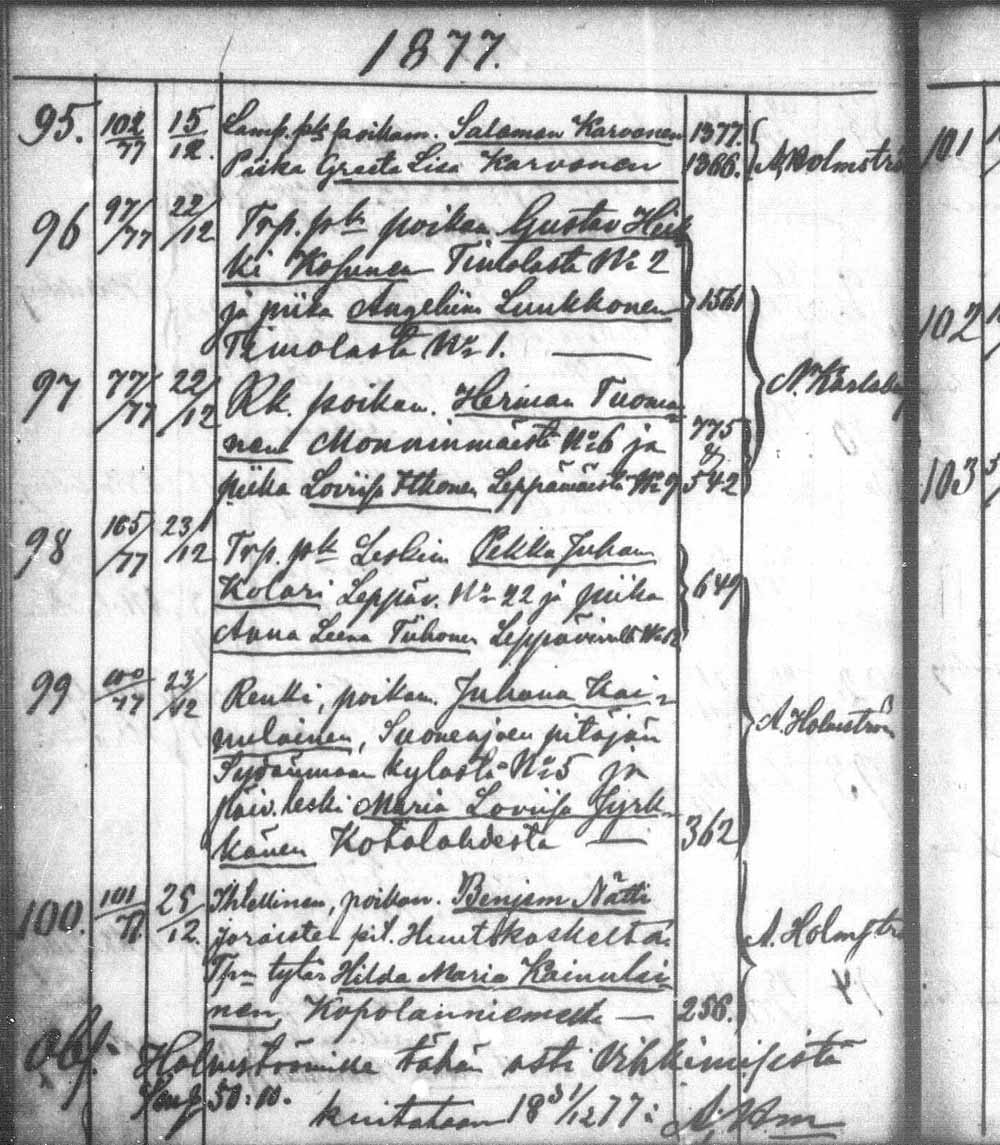 1877.
95. 102/77 15/12. Lamp. pts poikam. Salomon Karvonen 1377.
Piika Greeta Lisa Karvonen 1366. A. Holmströ
96 97/77 22/12 Trp. pk poikam Gustav Heik
ki Kosunen Timolasta No 2
ja piika Angeliina Luukkonen 1561
Timolasta No 1. —
97 77/77 22/12 Rk. poikam. Herman Tuoma-
nen Monninmäestä No 6 ja 775
piika Loviisa Itkonen Leppämäestä No 9 542
98 165/77 23/12 Trp. pk Leskim Pekka Juhan
Kolari Leppäv. No 22 ja piika 649
Anna Leena Tiihonen Leppävirralta No 12
99 100/77 23/12 Renki, poikam. Juhana Kai-
nulainen, Suonenjoen pitäjän A. Holmström
Sydänmaan kylästä No 5 ja
päiv. leski Maria Loviisa Jyrk-
känen Kotalahdesta — 362
100. 101/77 25/12. Itsellinen, poikam. Benjam Nätti
Joroisten pit. Huutokoskelta A. Holmströ
Tpn tytär Hilda Maria Kainulai-
nen, Kopolanniemestä — 256.
4
Obs. Holmströmille tähän asti Vihkimisistä
50:10.
kuitataan 18 31/12 77:
101
102
103